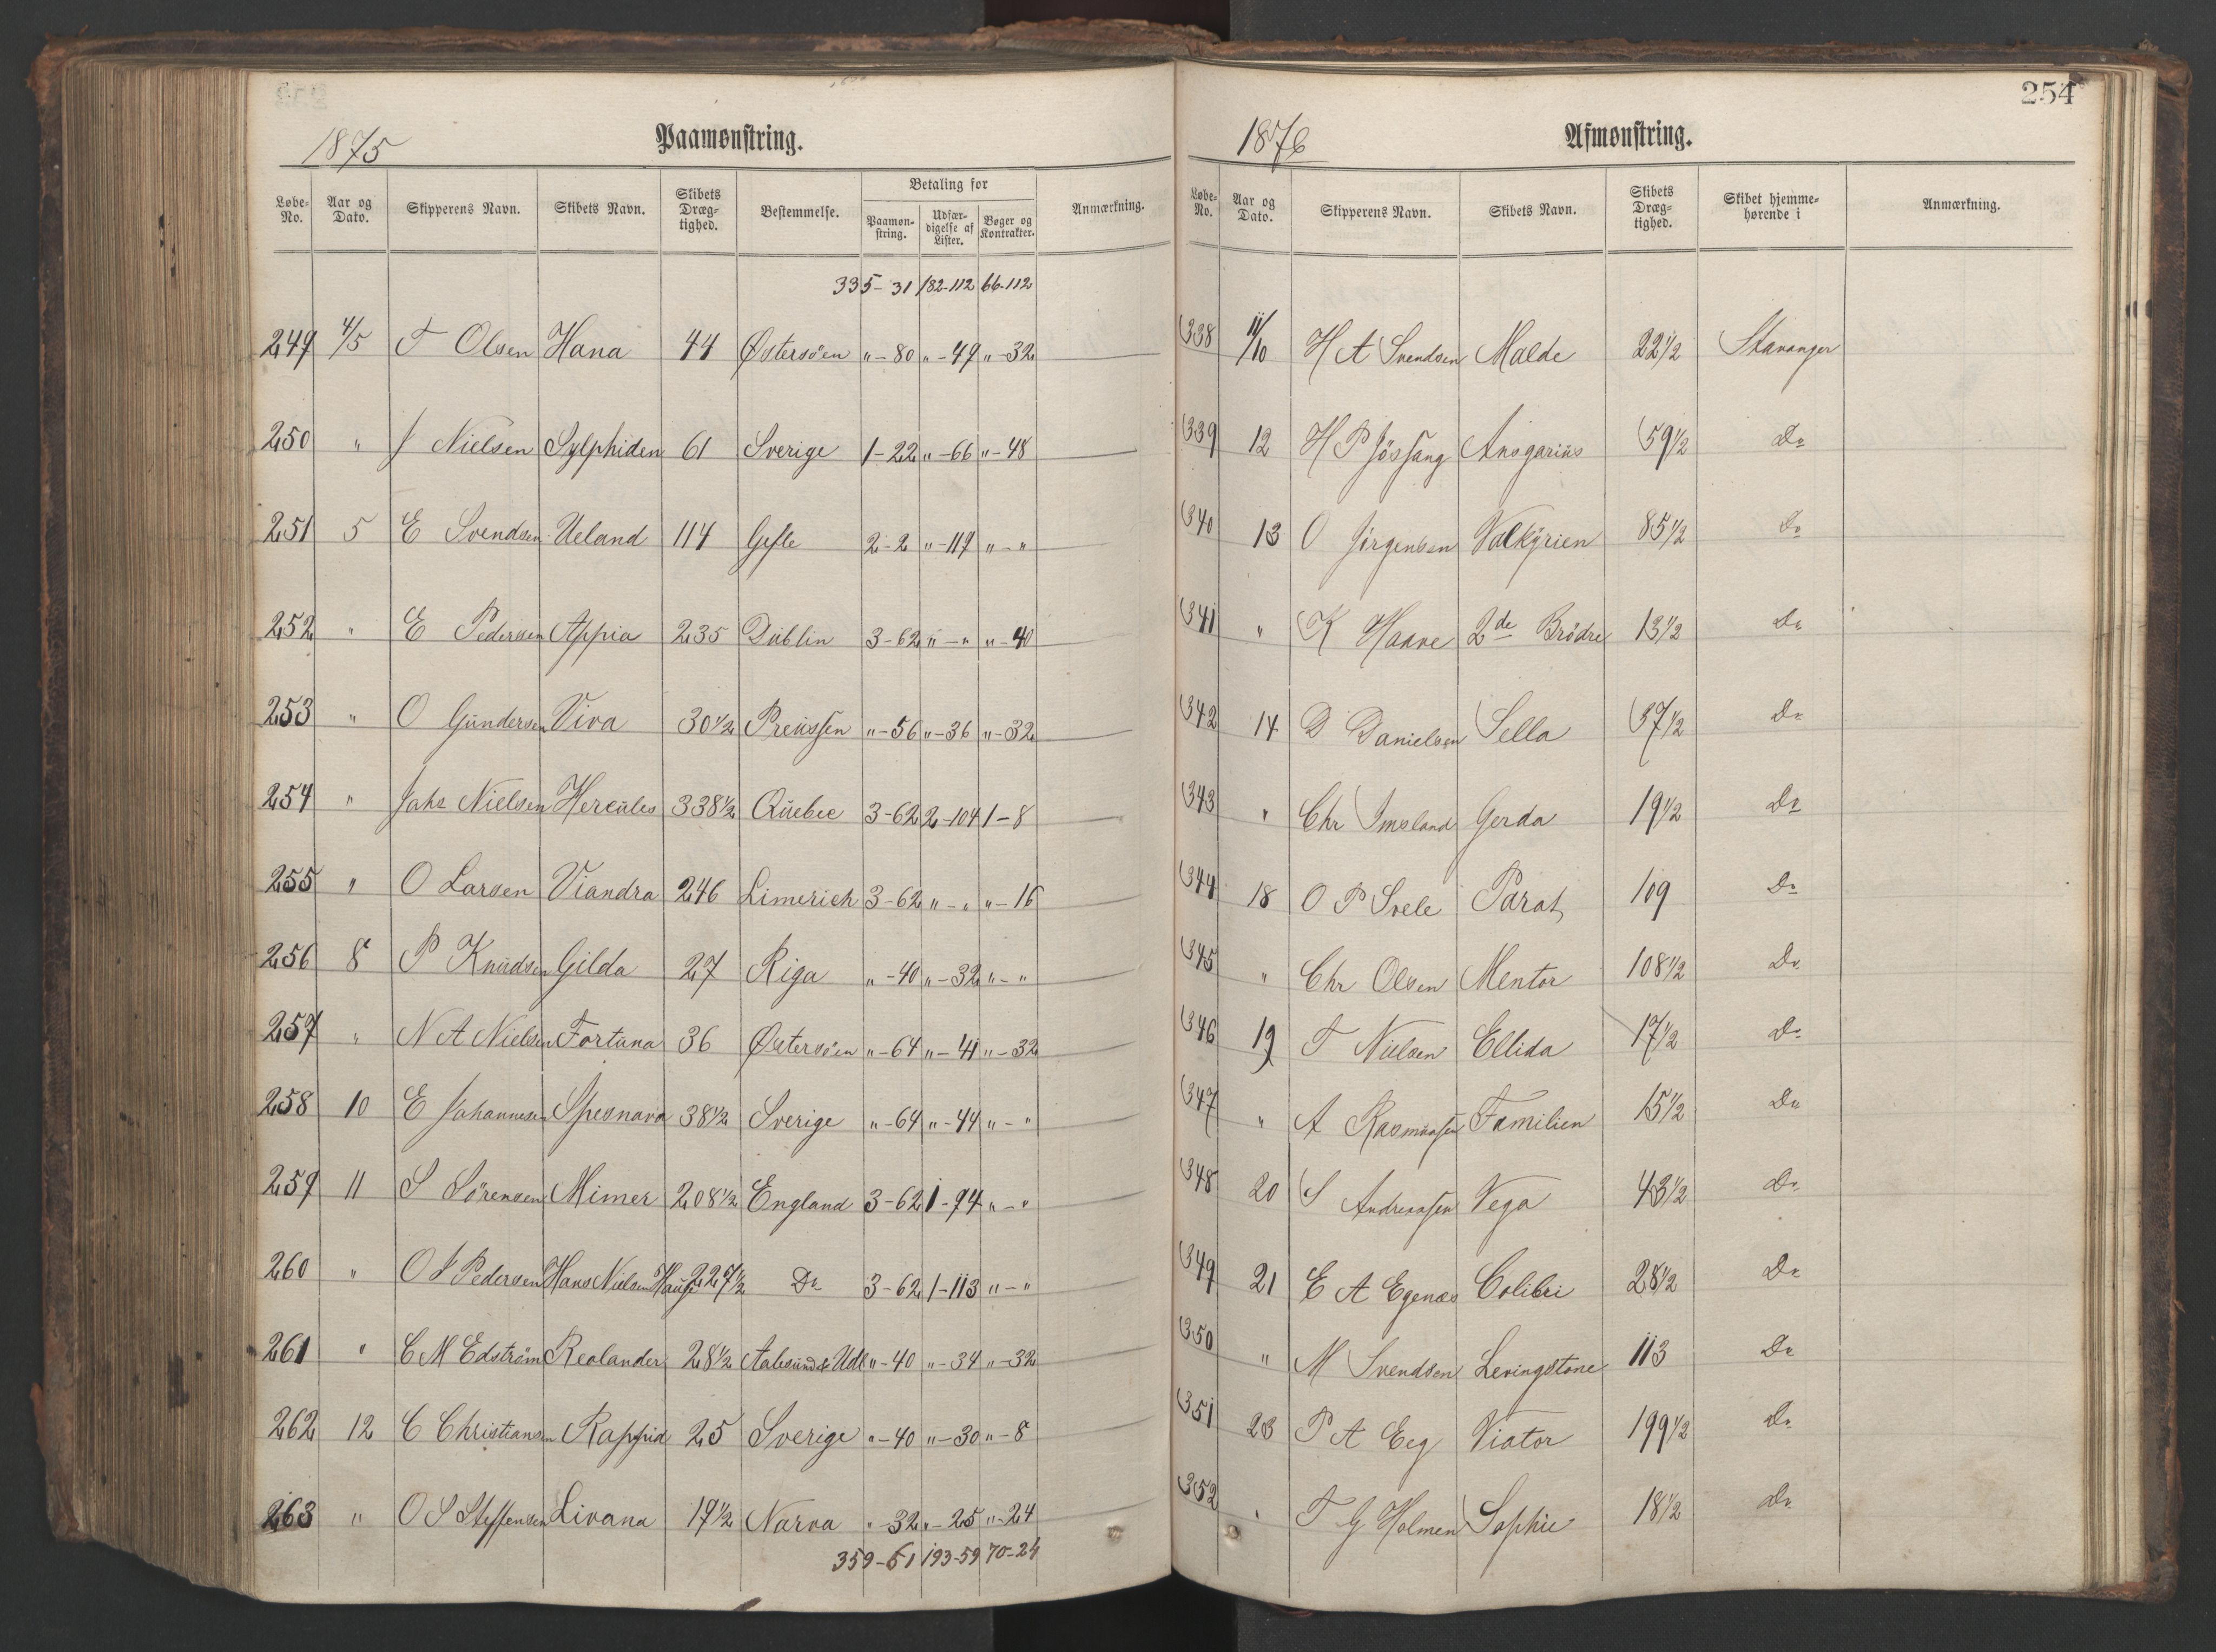 1875 Paamønstring.
Løbe-No. Aar og Dato. Skipperens Navn. Skibets Navn. Skibets Dræg-tighed. Bestemmelse. Betaling for Paamøn-string. Udfær-digelse af Lister. Bøger og Kontrakter. Anmærkning.
335-31 182-112 66-112
249 4/5 T Olsen Hana 44 Østersöen "-80 "-49 "-32
250 " J Nielsen Sylphiden 61 Sverige 1-22 "-66 "-48
251 5 E Svendsen Ueland 114 Gefle 2-2 "-119 "-"
252 " E Pedersen Appia 235 Dublin 3-62 "-" "-40
253 " O Gundersen Viva 30½ Preussen "-56 "-36 "-32
254 " Johs Nielsen Hercules 338½ Quebec 3-62 2-104 1-8
255 " O Larsen Viandra 246 Limerich 3-62 "-" "-16
256 8 P Knudsen Gilda 27 Riga "-40 "-32 "-"
257 " N A Nielsen Fortuna 36 Østersöen "-64 "-41 "-32
258 10 E Johannesen Spesnava 38½ Sverige "-64 "-44 "-"
259 11 S Sörensen Mimer 208½ England 3-62 1-94 "-"
260 " O S Pedersen Hans Nielsen Hauge 227½ Do 3-62 1-113 "-"
261 " C M Edström Reolander 28½ Aalesund & Udl "-40 "-34 "-32
262 12 C Christiansen Rappid 25 Sverige "-40 "-30 "-8
263 " O S Steffensen Livana 17½ Narva "-32 "-25 "-24
359-61 193-59 70-24
254
1876 Afmønstring.
Løbe-No. Aar og Dato. Skipperens Navn. Skibets Navn. Skibets Dræg-tighed. Skibet hjemme-hørende i Anmærkning.
338 11/10 H A Svendsen Malde 22½ Stavanger
339 12 H P Jössang Ansgarius 59½ Do
340 13 O Jörgensen Valkyrien 85½ Do
341 " K Haave 2de Brödre 13½ Do
342 14 D Danielsen Sella 37½ Do
343 " Chr Imsland Gerda 19½ Do
344 18 O P Svele Parat 109 Do
345 " Chr Olsen Mentor 108½ Do
346 19 T Nielsen Ellida 17½ Do
347 " A Rasmussen Familien 15½ Do
348 20 S Andreassen Vega 43½ Do
349 21 E A Egenæs Colibri 28½ Do
350 " M Svendsen Levingstone 113 Do
351 23 P A Eeg Viator 199½ Do
352 " T G Holmen Sophie 18½ Do